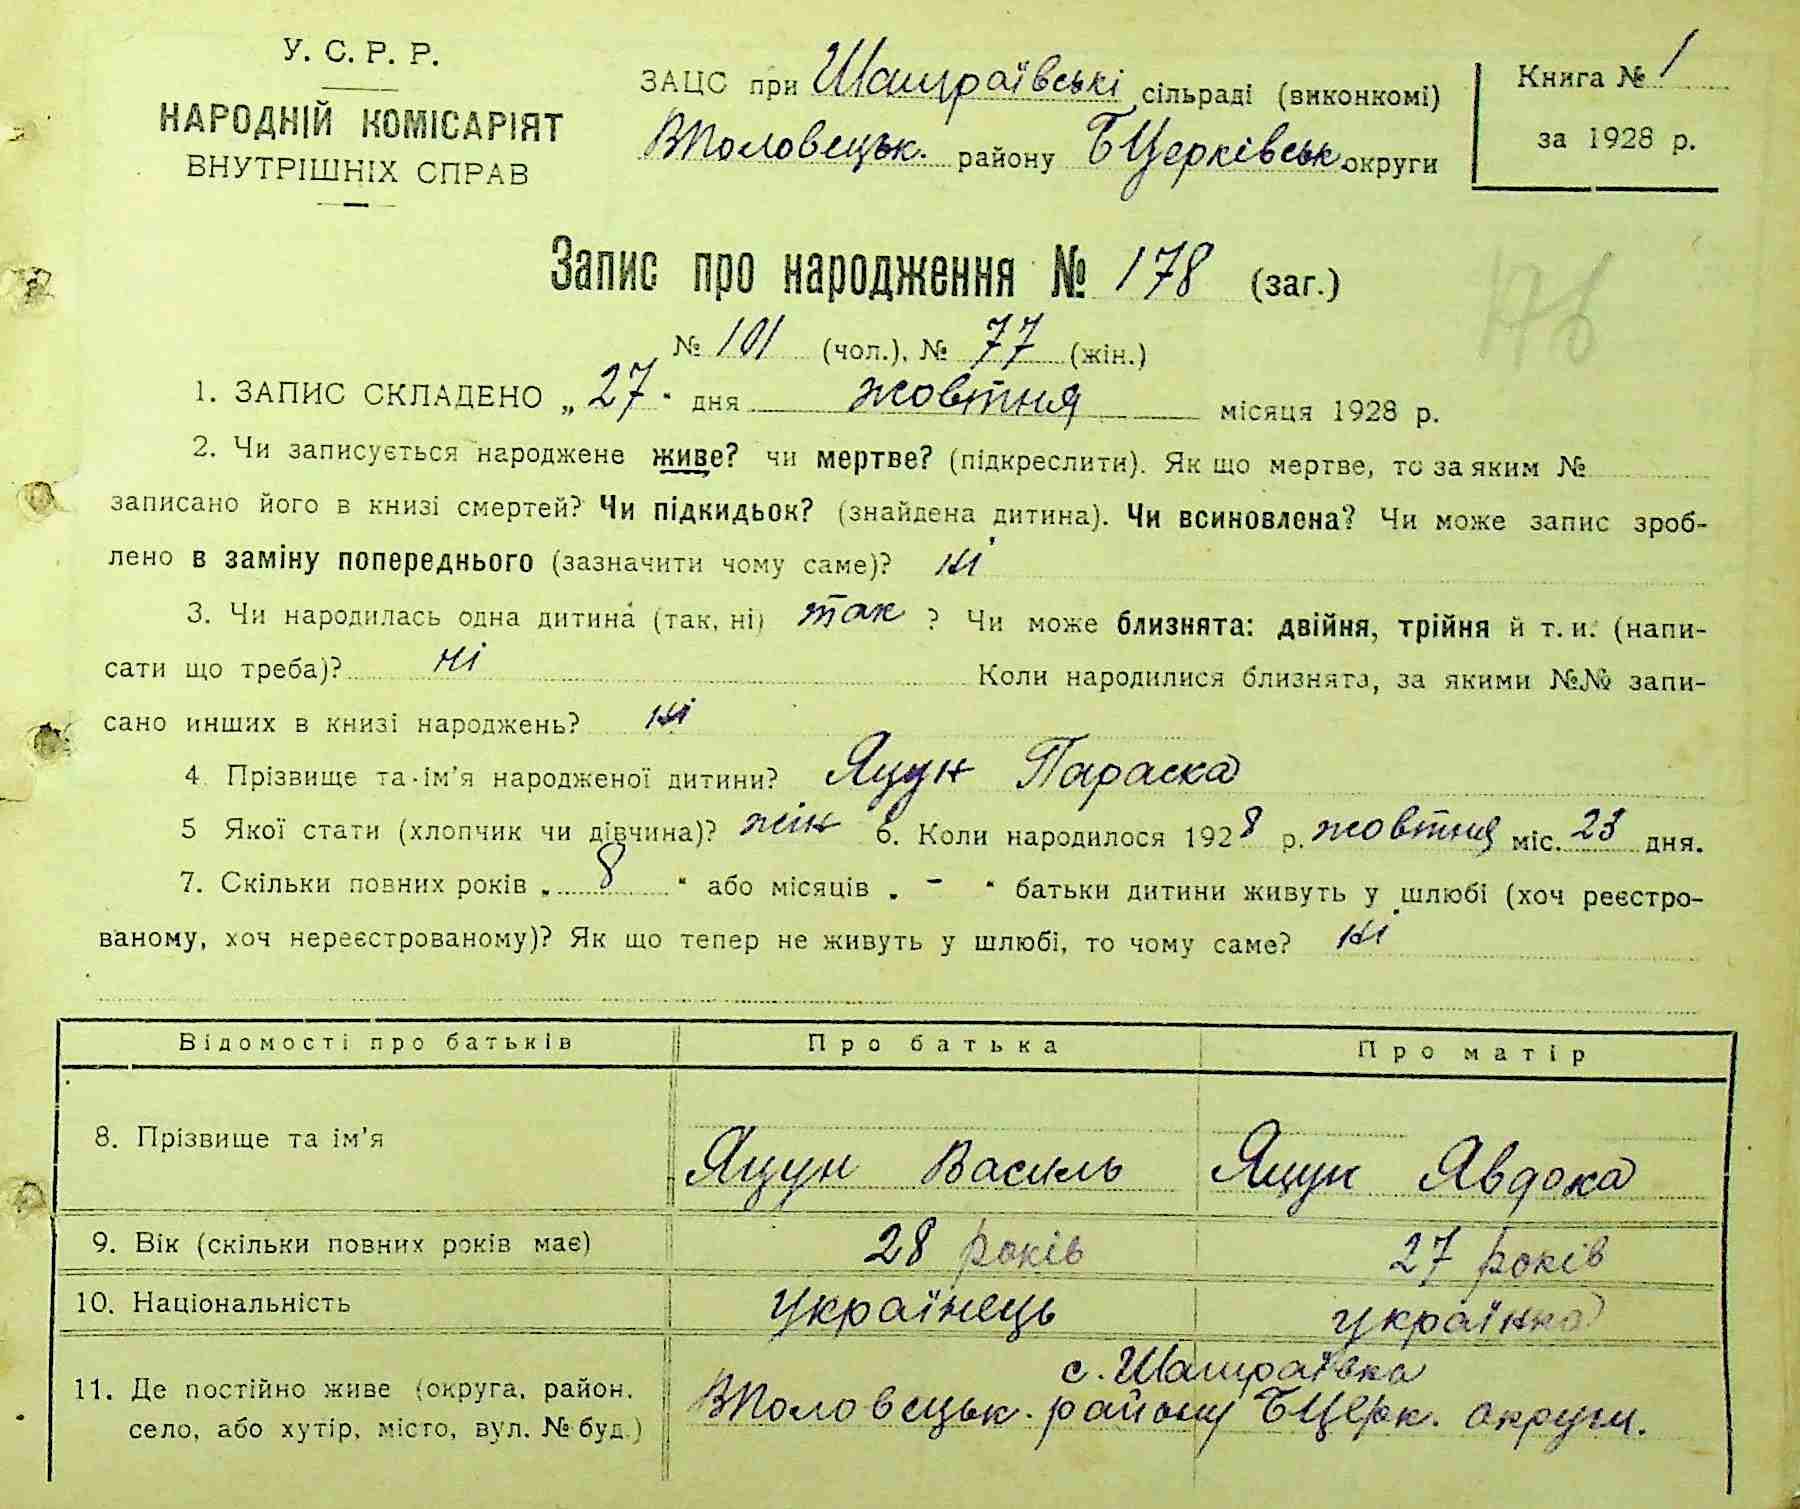 У. С. Р. Р.
НАРОДНІЙ КОМІСАРІЯТ
ВНУТРІШНІХ СПРАВ
ЗАЦС при Шамраївські сільраді (виконкомі)
ВПоловецьк. району БЦерківськ. округи
Книга № 1
за 1928 р.
Запис про народження № 178 (заг.)
№ 101 (чол.), № 77 (жін.)
1. ЗАПИС СКЛАДЕНО „ 27 " дня жовтня місяця 1928 р.
2. Чи записується народжене живе? чи мертве? (підкреслити). Як що мертве, то за яким №
записано його в книзі смертей? Чи підкидьок? (знайдена дитина). Чи всиновлена? Чи може запис зроб-
лено в заміну попереднього (зазначити чому саме)? ні
3. Чи народилась одна дитина (так, ні) так ? Чи може близнята: двійня, трійня й т. и. (напи-
сати що треба)? ні Коли народилися близнята, за якими №№ запи-
сано инших в книзі народжень? ні
4. Прізвище та ім'я народженої дитини? Яцун Параска
5 Якої стати (хлопчик чи дівчина)? жін 6. Коли народилося 1928 р. жовтня міс. 23 дня.
7. Скільки повних років „ 8 " або місяців „ - " батьки дитини живуть у шлюбі (хоч реєстро-
ваному, хоч нереєстрованому)? Як що тепер не живуть у шлюбі, то чому саме? ні
Відомості про батьків Про батька Про матір
8. Прізвище та ім'я Яцун Василь Яцун Явдока
9. Вік (скільки повних років має) 28 років 27 років
10. Національність українець українка
с. Шамраївка
11. Де постійно живе (округа, район, ВПоловецьк. району БЦерк. округи.
село, або хутір, місто, вул. № буд.)